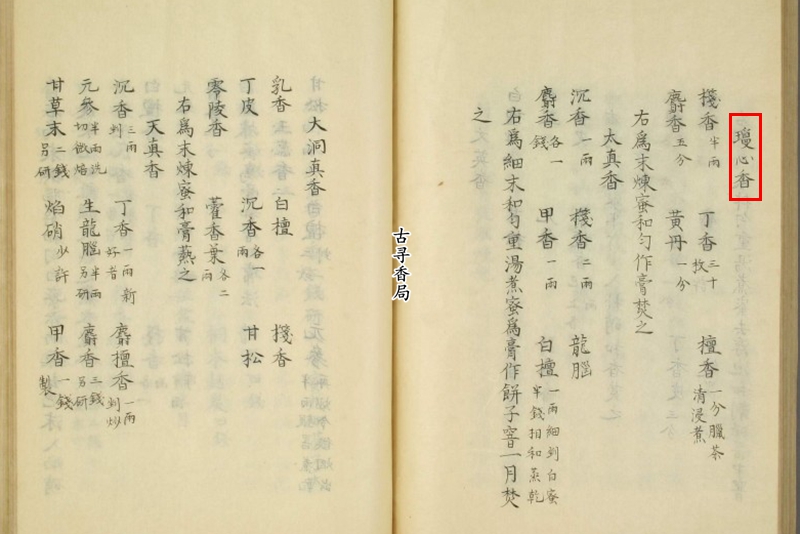 瓊心香
棧香半兩 丁香三十枚 檀香一分臘茶清浸煮
麝香五分 黃丹一分
右爲末煉蜜和勻作膏焚之
太真香
沉香一兩 棧香二兩 龍腦
麝香各一錢 甲香一兩 白檀一兩細剉白蜜半錢相和蒸乾
右爲細末和勻重湯煮蜜爲膏作餅子窨一月焚
之
古寻香局
大洞真香
乳香 白檀 棧香
丁皮 沉香各一兩 甘松
零陵香 藿香葉各二兩
右爲末煉蜜和膏爇之
天真香
沉香三兩剉 丁香一兩新好者 麝檀香一兩剉炒
元參半兩洗切微焙 生龍腦半兩另研 麝香三錢另研
甘草末二錢另研 焰硝少許 甲香一錢製